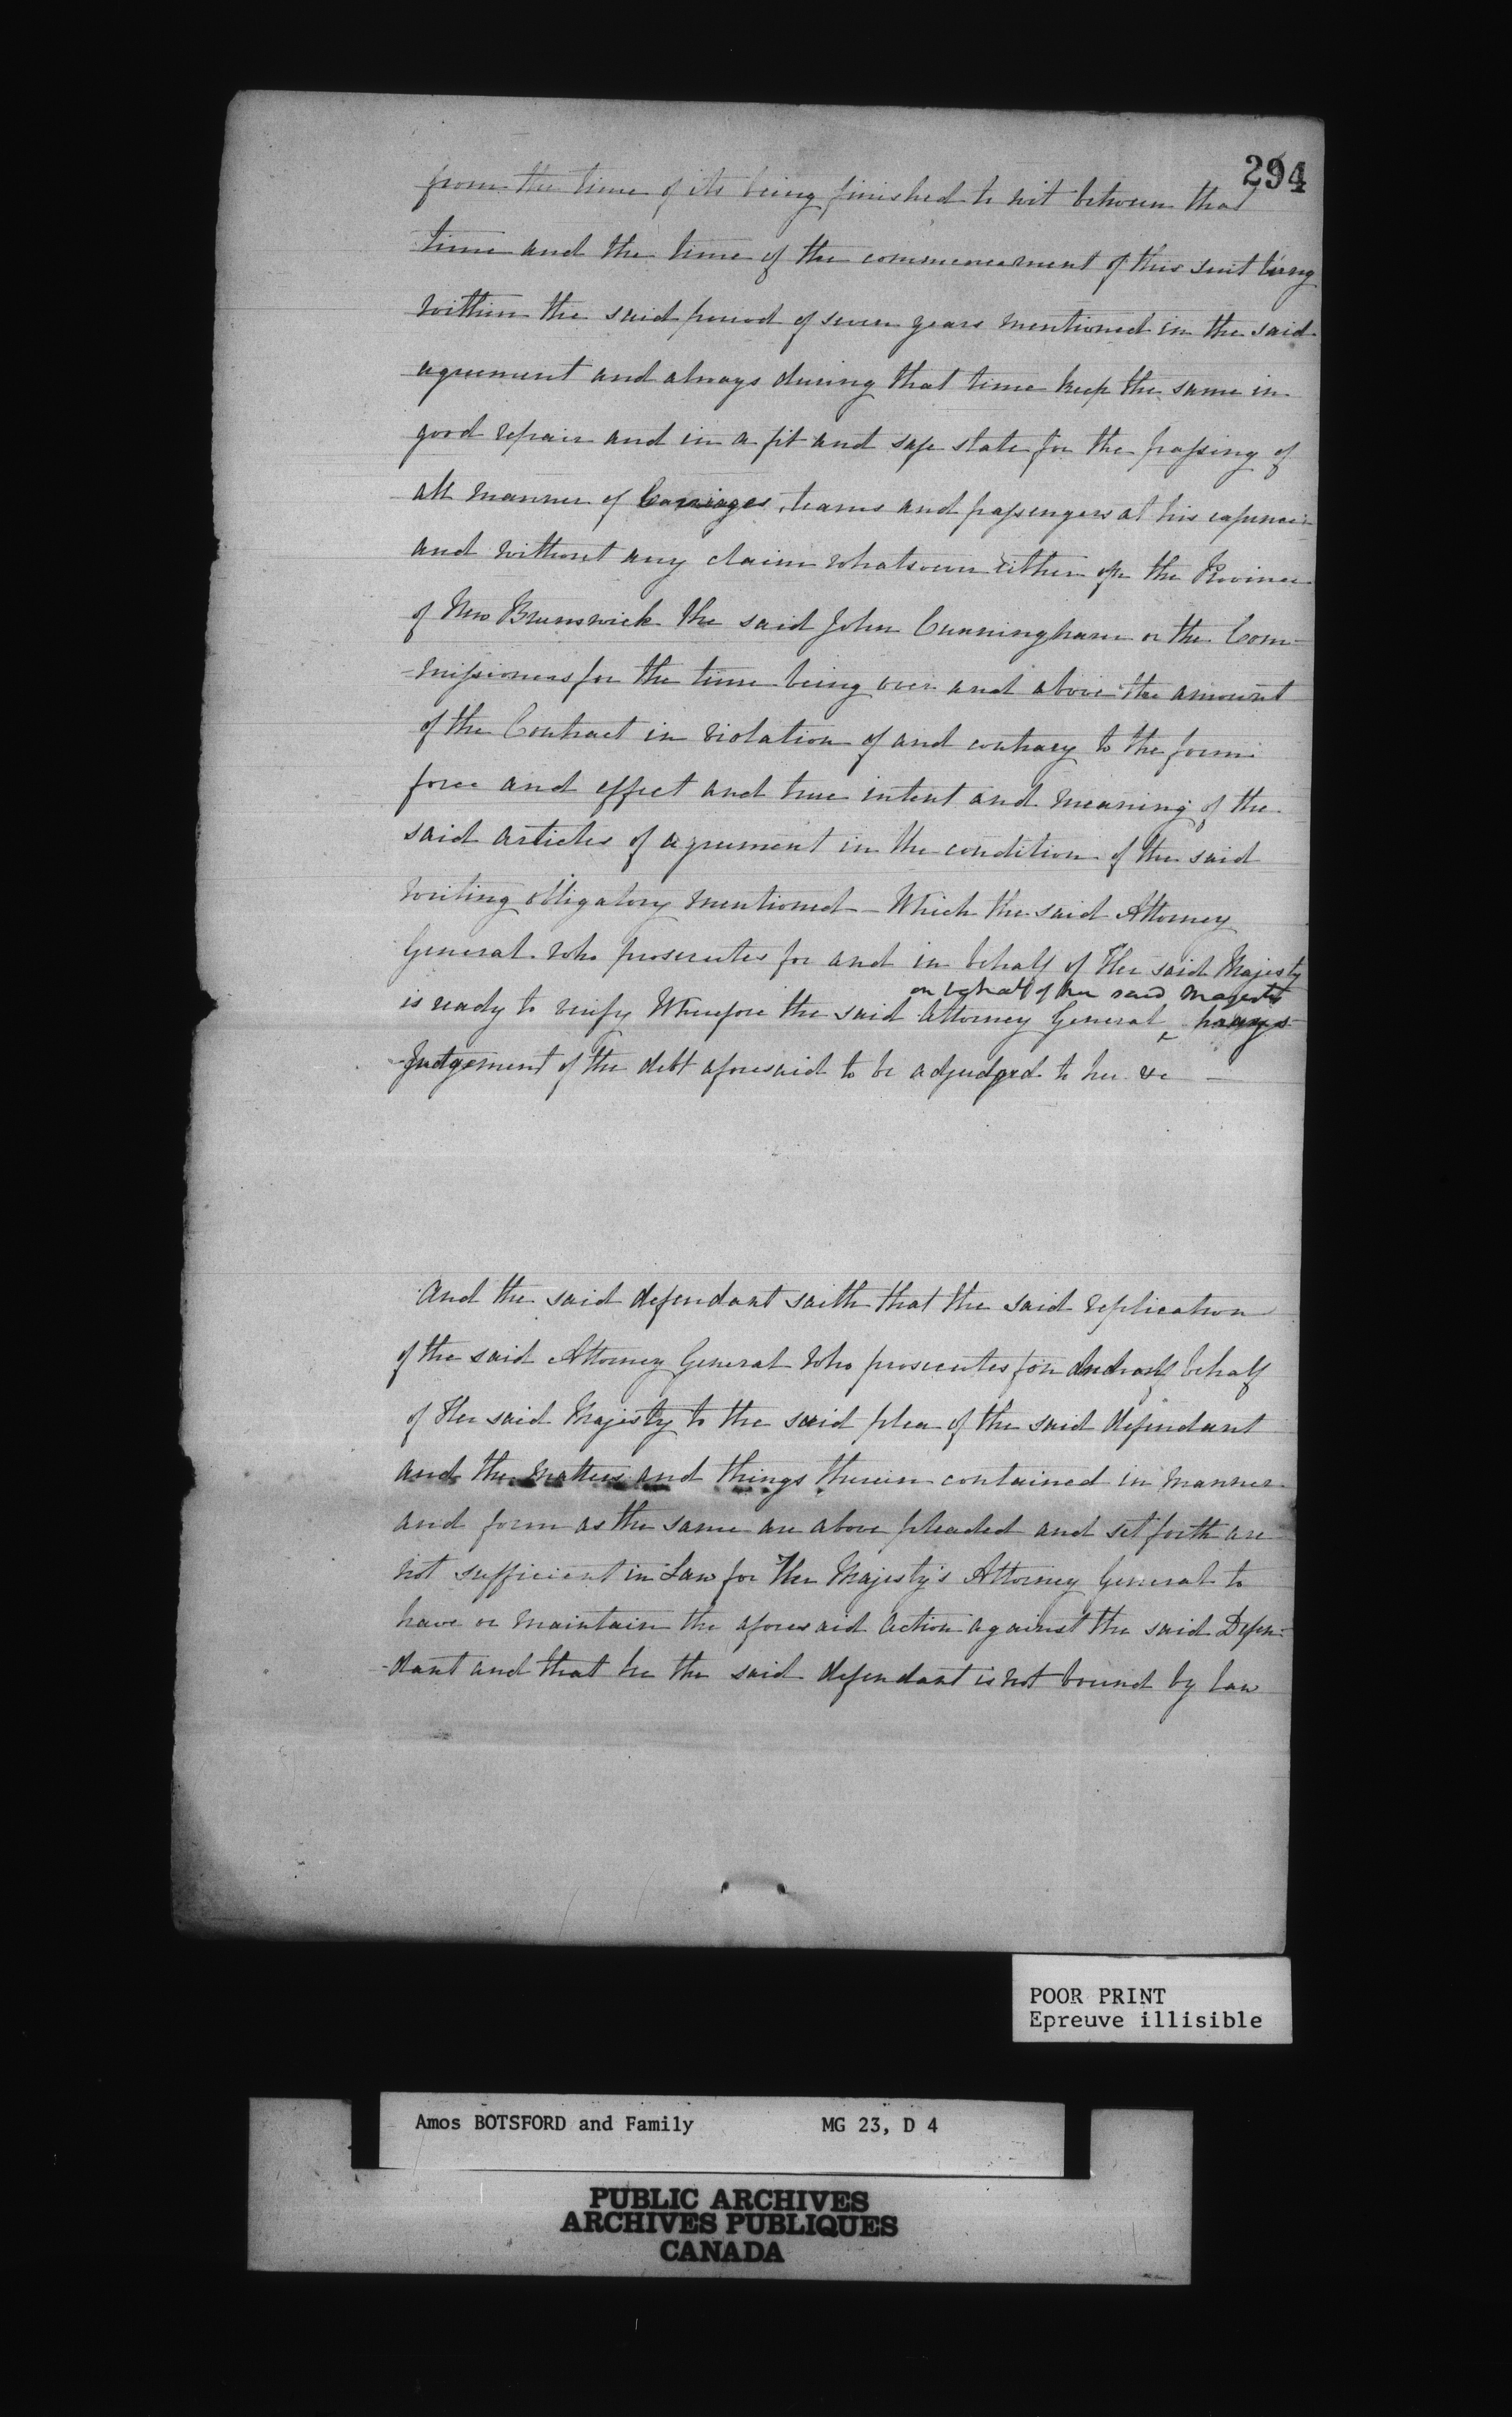 294
from the time of its being finished to wit between that
time and the time of the commencement of this suit being
within the said period of seven years mentioned in the said
agreement and always during that time keep the same in
good repair and in a fit and safe state for the passing of
all manner of Carriages, teams and passengers at his expence
and without any claim whatsoever either on the Province
of New Brunswick the said John Cunningham or the Com-
-missioners for the time being over and above the amount
of the Contract in violation of and contrary to the form
force and effect and true intent and meaning of the
said articles of agreement in the condition of the said
writing obligatory mentioned - Which the said Attorney
General who prosecutes for and in behalf of Her said Majesty
on behalf of her said Majesty
is ready to verify Wherefore the said Attorney General prays
Judgement of the debt aforesaid to be adjudged to her &c —
And the said defendant saith that the said replication
of the said Attorney General who prosecutes for and on behalf
of Her said Majesty to the said plea of the said defendant
and the matters and things therein contained in manner
and form as the same are above pleaded and set forth are
not sufficient in Law for Her Majesty's Attorney General to
have or maintain the aforesaid action against the said Defen-
-dant and that he the said defendant is not bound by law
POOR PRINT
Epreuve illisible
Amos BOTSFORD and Family MG 23, D 4
PUBLIC ARCHIVES
ARCHIVES PUBLIQUES
CANADA